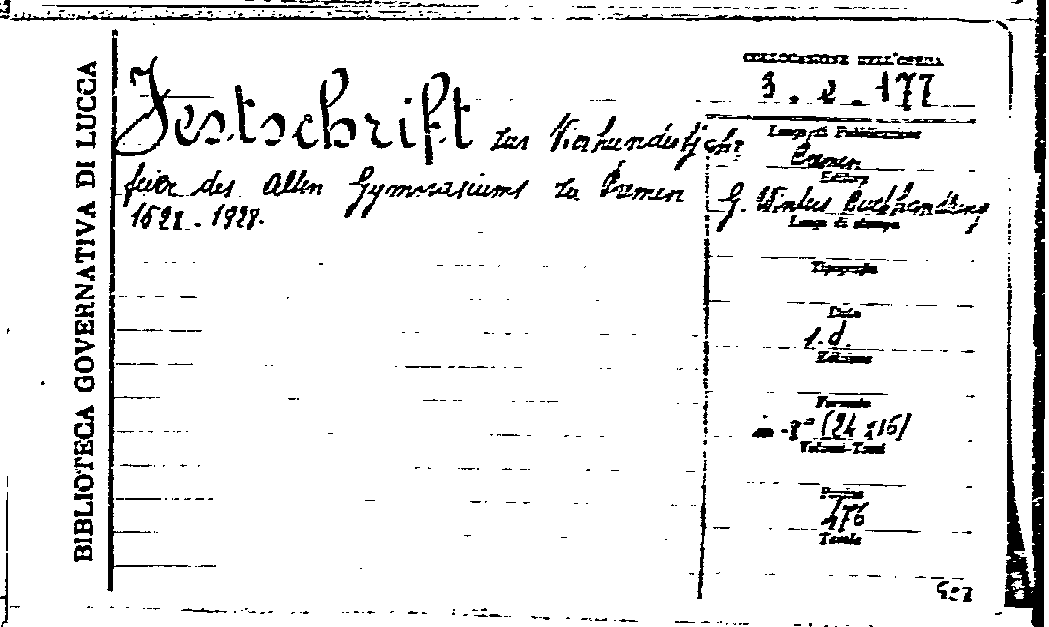 BIBLIOTECA GOVERNATIVA DI LUCCA
Festschrift zur Vierhundertjahr
feier des Alten Gymnasiums zu Bremen
1528 - 1928.
COLLOCAZIONE DELL'OPERA
3. 2. 177
Luogo di Pubblicazione
Bremen
Editore
G. Winters Buchhandlung
Luogo di stampa
Tipografia
Data
s.d.
Edizione
Formato
in-8° (24x16)
Volumi-Tomi
Pagine
476
Tavole